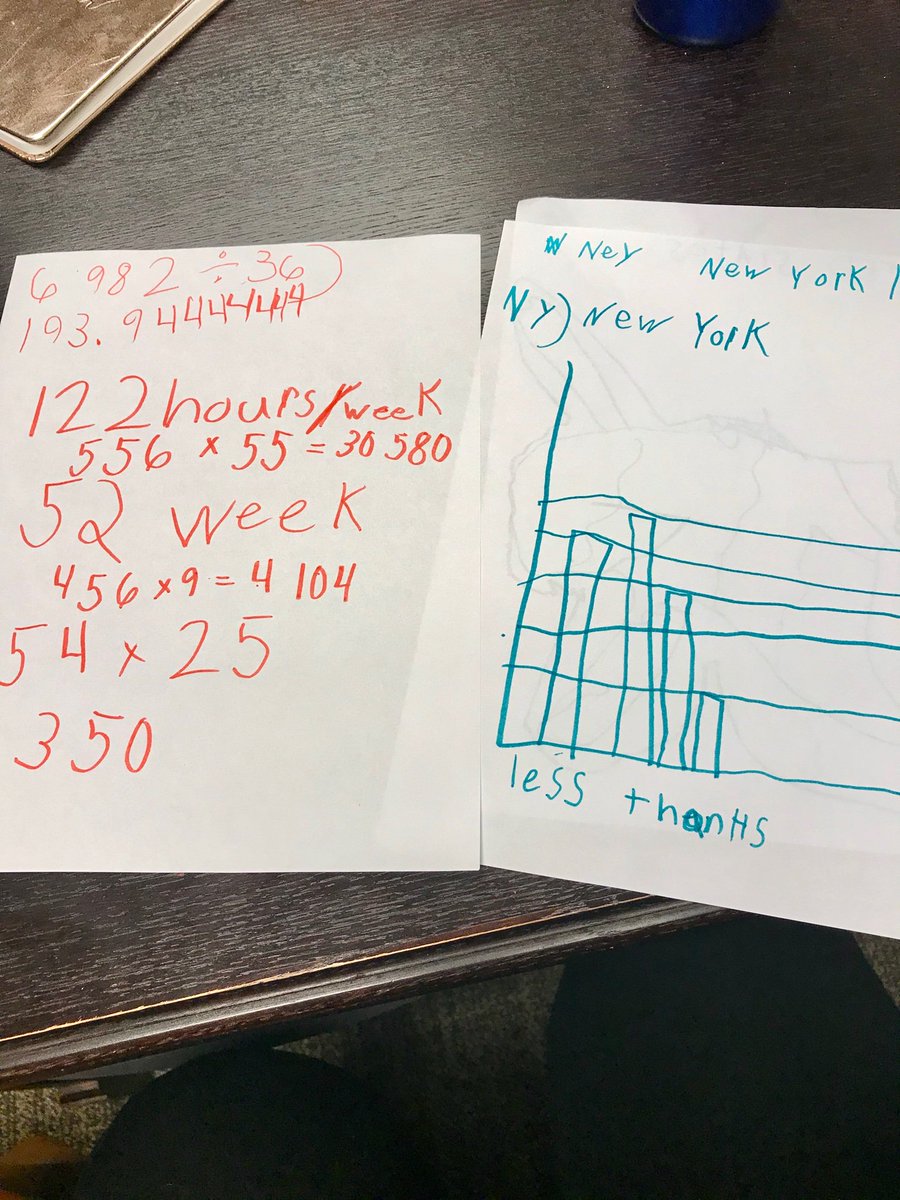 6 982 ÷ 36)
193.94444444
122 hours/week
556 × 55 = 30 580
52 week
456 × 9 = 4 104
54 × 25
350
W Ney New York
NY) New York
less thanHS